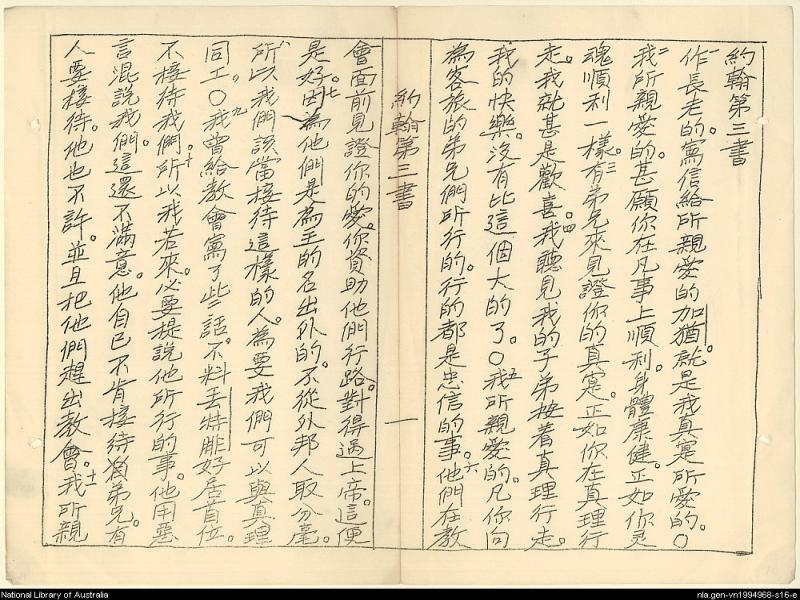 約翰第三書
一作長老的。寫信給所親愛的加猶。就是我真實所愛的。〇
二我所親愛的。甚願你在凡事上順利。身體康健。正如你靈
魂順利一樣。三有弟兄來見證你的真寔。正如你在真理行
走。我就甚是歡喜。四我聽見我的子弟按着真理行走。
我的快樂。沒有比這個大的了。〇五我所親愛的。凡你向
為客旅的弟兄們所行的。行的都是忠信的事。六他們在教
約翰第三書
一
會面前見證你的愛。你資助他們行路。對得過上帝。這便
是好。七因為他們是為主的名出外的。不從外邦人取分毫。
八所以我們該當接待這樣的人。為要我們可以與真理
同工。〇九我曾給教會寫了些話。不料丢特腓好居首位。
不接待我們。十所以我若來。必要提說他所行的事。他用惡
言混說我們。這還不滿意。他自己不肯接待弟兄。有
人要接待。他也不許。並且把他們趕出教會。十一我所親
National Library of Australia
nla.gen-vn1994968-s16-e